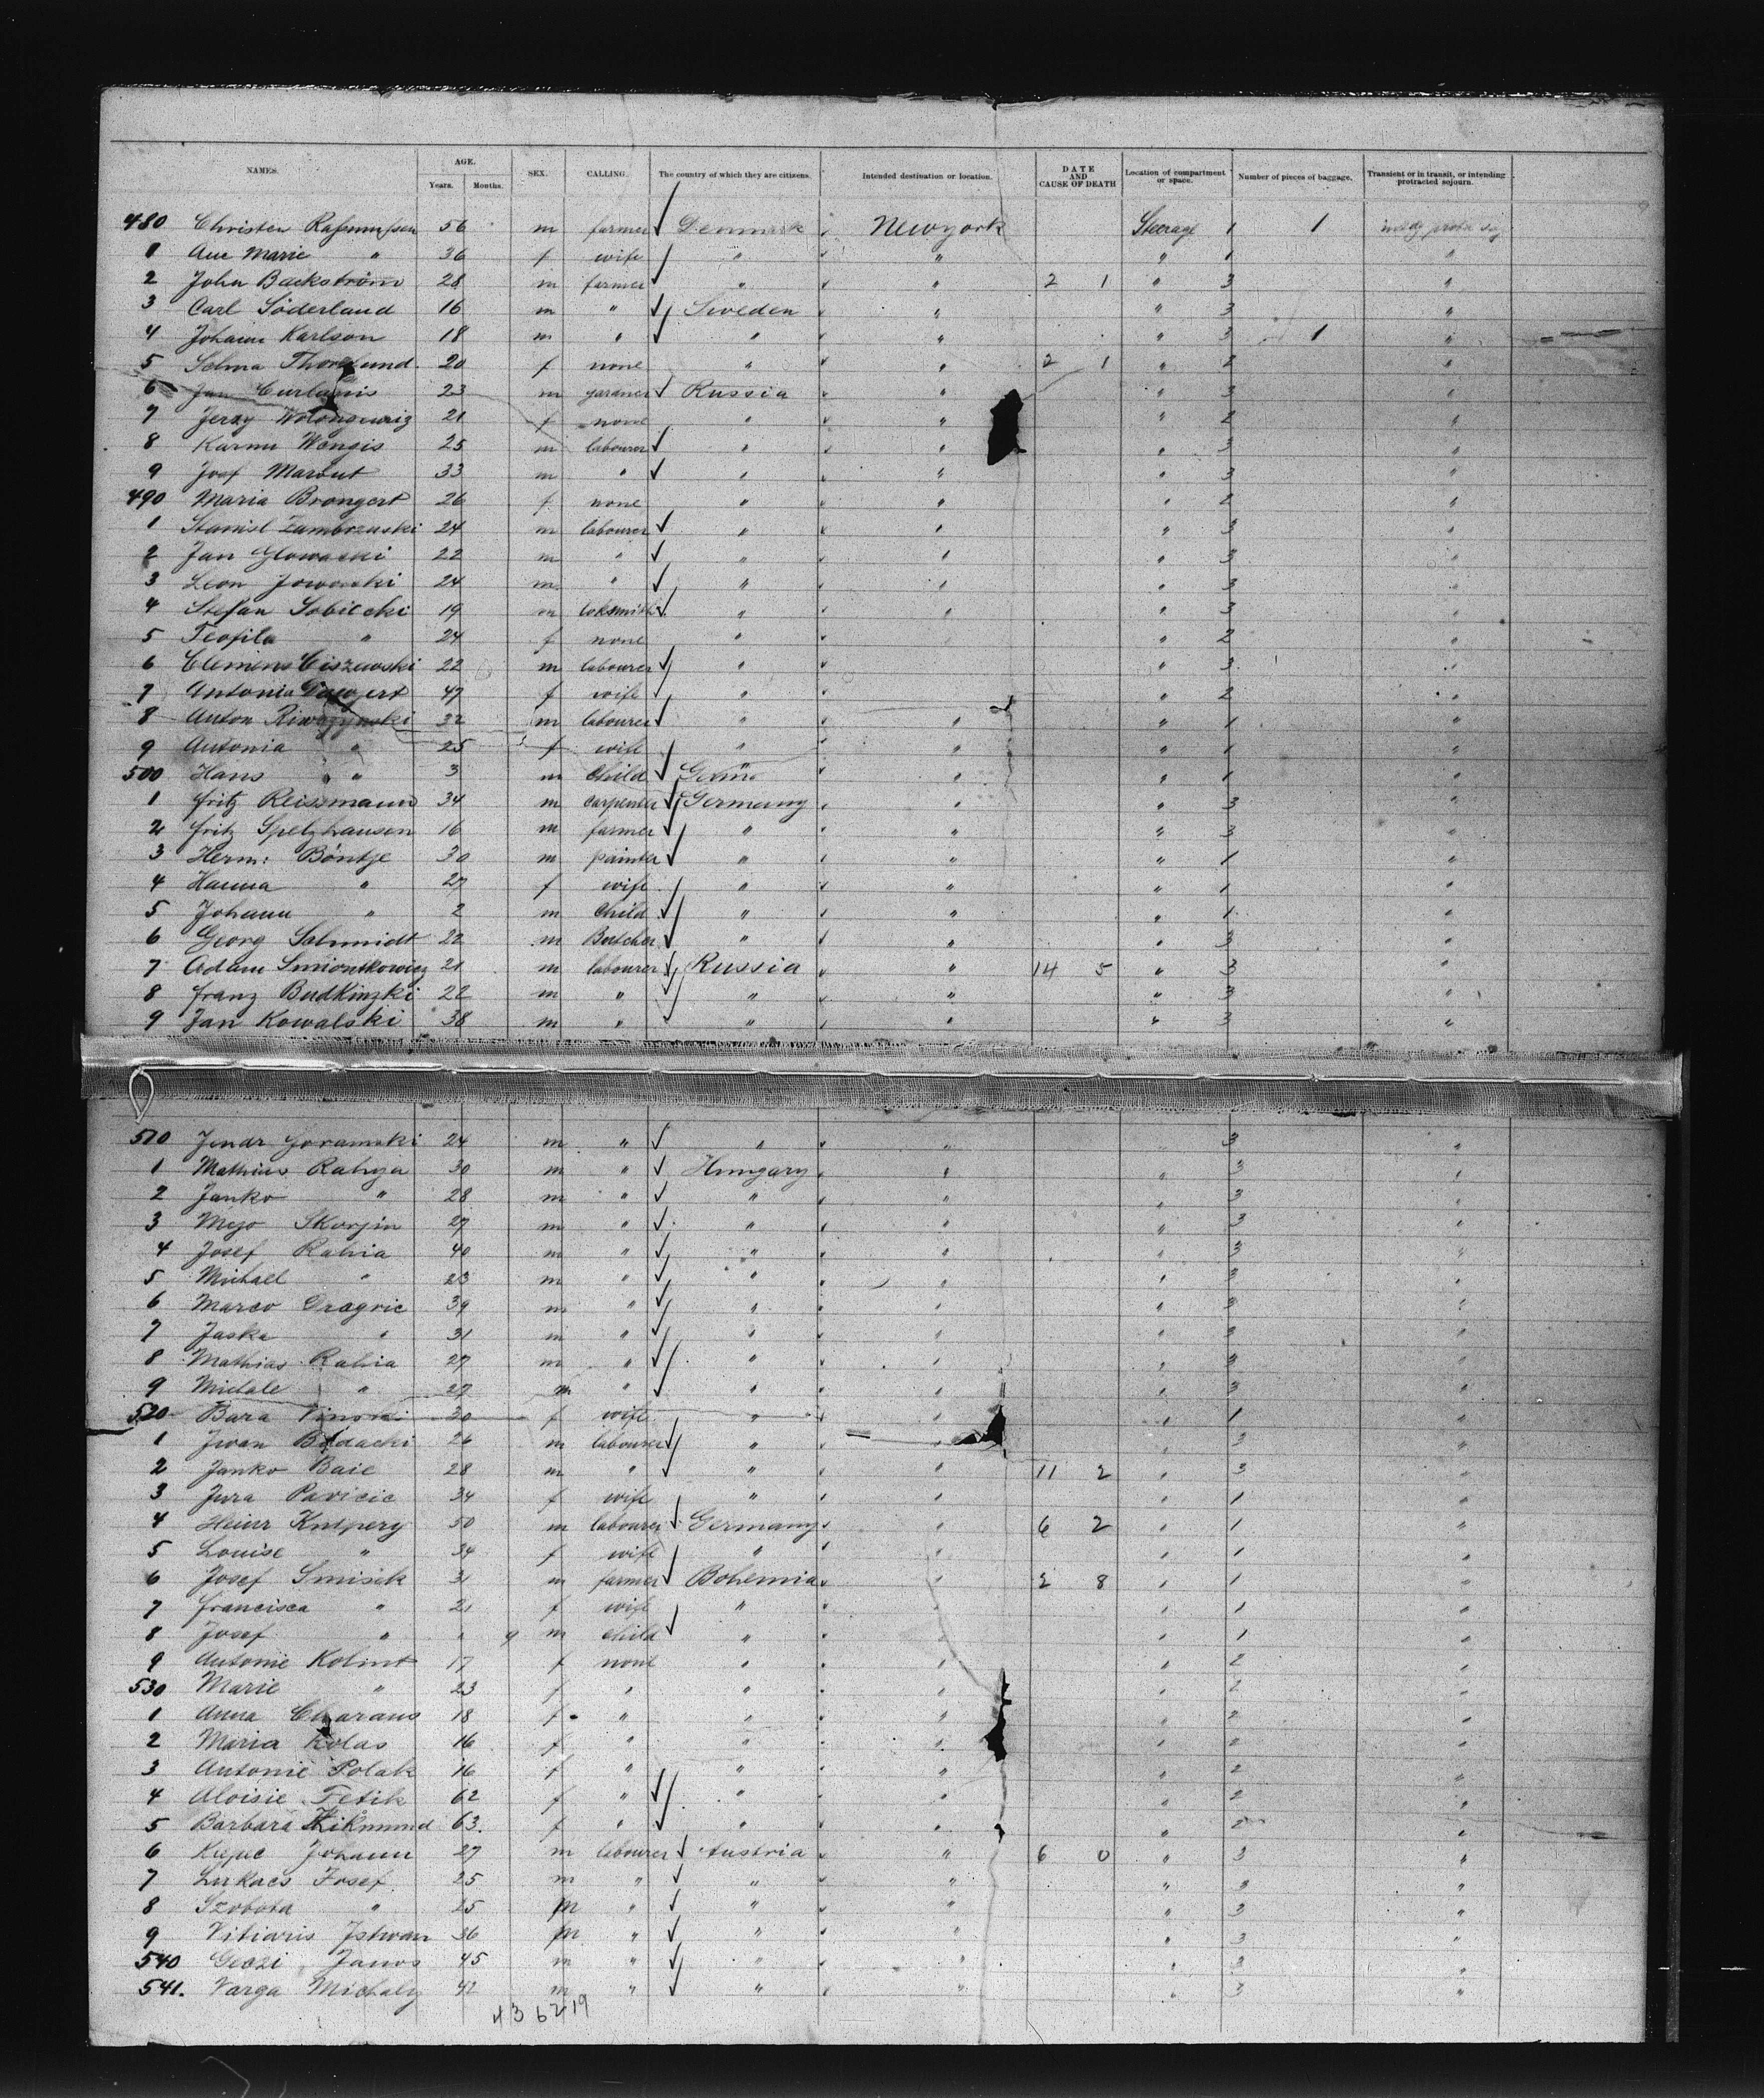 NAMES. AGE. Years. Months. SEX. CALLING. The country of which they are citizens. Intended destination or location. DATE AND CAUSE OF DEATH Location of compartment or space. Number of pieces of baggage. Transient or in transit, or intending protracted sojourn.
480 Christen 56 m farmer Denmark Newyork Steerage 1 1
1 Ane Marie " 36 f wife " " " 1 "
2 John Backström 28 m farmer " " 2 1 " 3 "
3 Carl Söderland 16 m " Sweden " " 3 "
4 Johann Karlson 18 m " " " " 3 1 "
5 Selma 20 f none " " 2 1 " 2 "
6 Jan 23 m Russia " " 3 "
7 Jerzy 21 f none " " " 2 "
8 Karmu Wengis 25 m labourer " " " 3 "
9 Josef Marout 33 m " " " " 3 "
490 Maria Brongert 26 f none " " " 2 "
1 Stanisl Zambrzuski 24 m labourer " " " 3 "
2 Jan Glowacki 22 m " " " " 3 "
3 Leon 24 m " " " " 3 "
4 Stefan Sobiecki 19 m loksmith " " " 3 "
5 Teofila " 24 f none " " 2 "
6 Clemens Ciszewski 22 m labourer " " 3 "
7 Antonia 47 f wife " " 2 "
8 Anton 32 m labourer " " " 1 "
9 Antonia " 25 f wife " " " 1 "
500 Hans " 3 m Child " " 1 "
1 Fritz Reissmann 34 m carpenter Germany " " 3 "
2 Fritz Spelzhausen 16 m farmer " " " 3 "
3 Herm: Böntje 30 m painter " " " 1 "
4 Hanna " 27 f wife " " " 1 "
5 Johann " 2 m Child " " " 1 "
6 Georg Schmidt 22 m Butcher " " " 3 "
7 Adam Smiontkowicz 21 m labourer Russia " 14 5 " 3 "
8 Franz Budkinzki 22 m " " " " 3 "
9 Jan Kowalski 38 m " " " " 3 "
510 24 m " " " 3 "
1 Mathias 30 m " Hungary " " 3 "
2 Janko " 28 m " " " " 3 "
3 Mejo Skorjin 27 m " " " " 3 "
4 Josef Rahia 40 m " " " " 3 "
5 Michael " 23 m " " " " 3 "
6 Marco Dragric 39 m " " " " 3 "
7 Jaska " 31 m " " " " 3 "
8 Mathias Rahia 27 m " " " " 3 "
9 Michale " 27 m " " " " 3 "
520 Bara 30 f wife " " " 1 "
1 Jwan 26 m labourer " " " 3 "
2 Janko Baic 28 m " " " 11 2 " 3 "
3 Jura Pavicic 34 f wife " " " 1 "
4 Heinr 50 m labourer Germany " 6 2 " 1 "
5 Louise " 34 f wife " " " 1 "
6 Josef Smisek 31 m farmer Bohemia " 2 8 " 1 "
7 Francisca " 21 f wife " " " 1 "
8 Josef " 9 m child " " " 1 "
9 Antonie Kolint 17 f none " " " 2 "
530 Marie " 23 f " " " " 2 "
1 Anna 18 f " " " " 2 "
2 Maria Kolas 16 f " " " " 2 "
3 Antonie Polak 16 f " " " " 2 "
4 Aloisie Fetik 62 f " " " " 2 "
5 Barbara 63. f " " " " 2 "
6 Johann 27 m labourer Austria " 6 0 " 3 "
7 Lukacs Josef 25 m " " " " 3 "
8 Szobota " 25 m " " " " 3 "
9 Istwan 36 m " " " " 3 "
540 Janos 45 m " " " " 3 "
541. Varga Michaly 42 m " " " " 3 "
436219